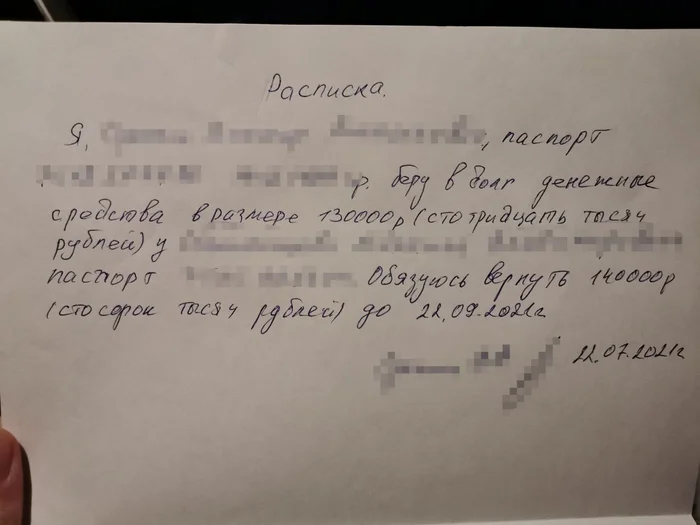 Расписка.
Я, , паспорт
р. беру в долг денежные
средства в размере 130000р (сто тридцать тысяч
рублей) у
паспорт Обязуюсь вернуть 140000р
(сто сорок тысяч рублей) до 22.09.2021г
22.07.2021г